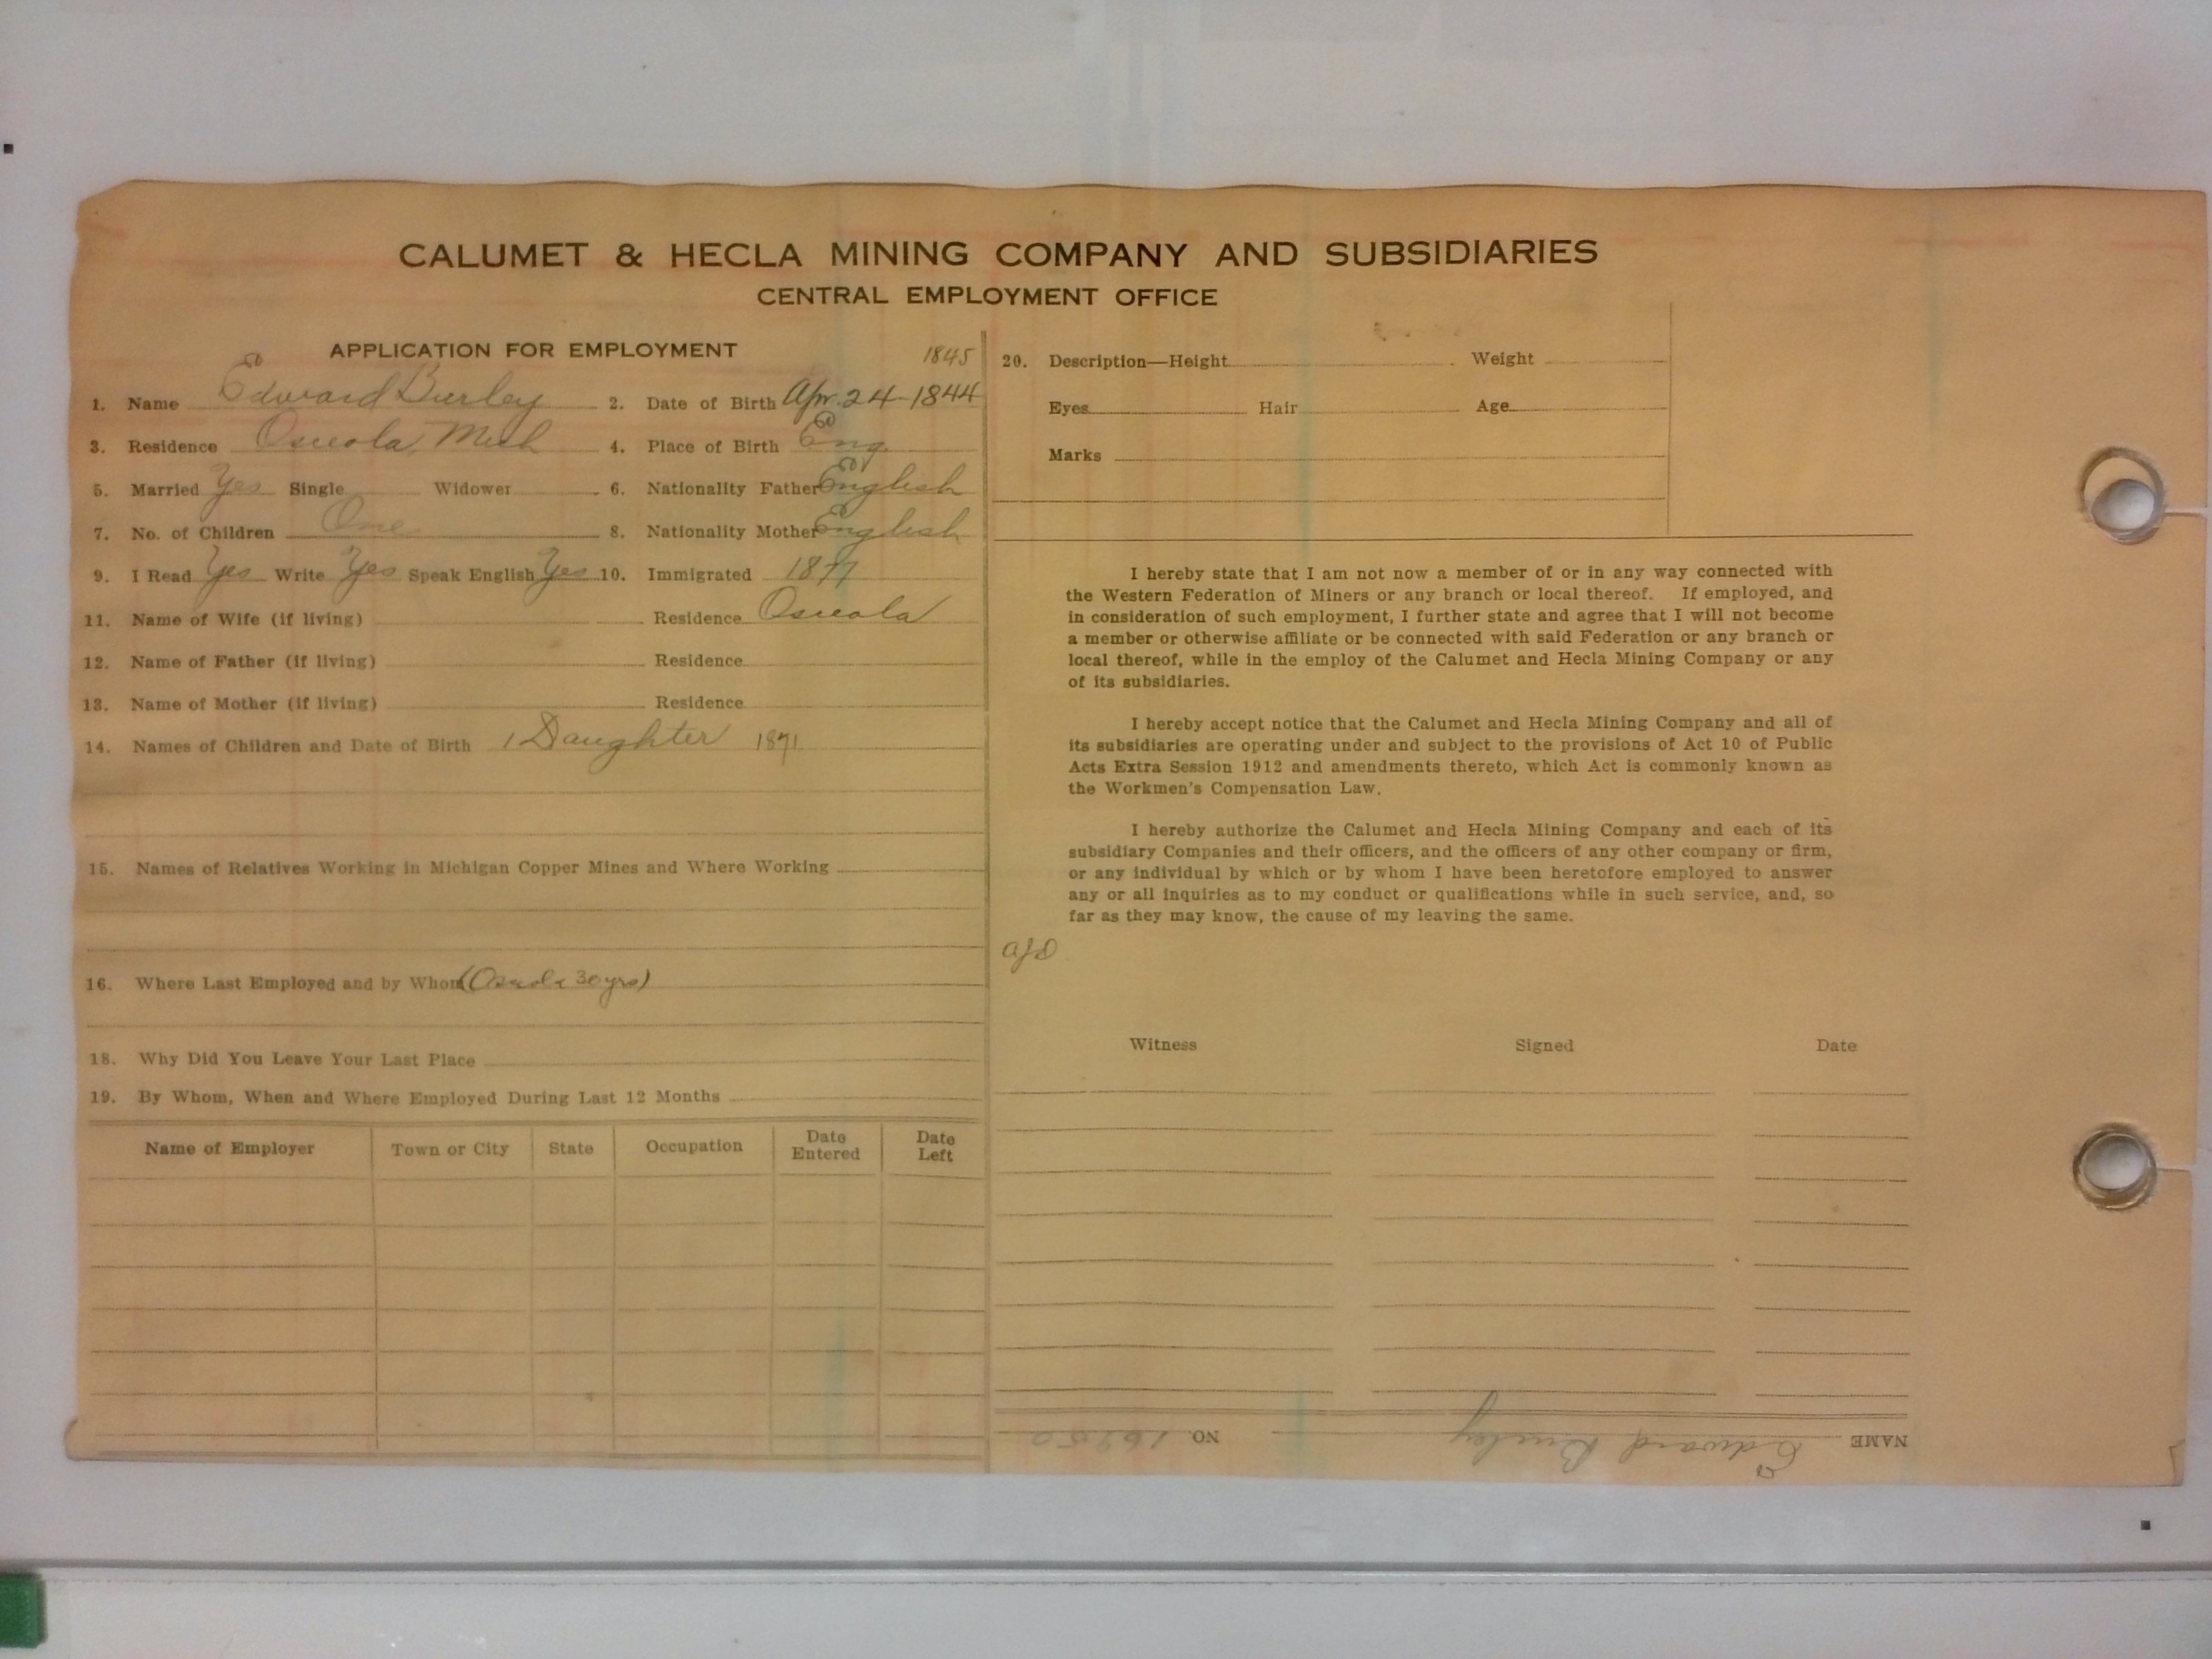 CALUMET & HECLA MINING COMPANY AND SUBSIDIARIES
CENTRAL EMPLOYMENT OFFICE
APPLICATION FOR EMPLOYMENT
1845
1. Name Edward Burley 2. Date of Birth Apr. 24-1844
3. Residence Osceola, Mich 4. Place of Birth Eng.
5. Married Yes Single Widower 6. Nationality Father English
7. No. of Children One 8. Nationality Mother English
9. I Read Yes Write Yes Speak English Yes 10. Immigrated 1877
11. Name of Wife (if living) Residence Osceola
12. Name of Father (if living) Residence
13. Name of Mother (if living) Residence
14. Names of Children and Date of Birth 1 Daughter 1871
15. Names of Relatives Working in Michigan Copper Mines and Where Working
16. Where Last Employed and by Whom (Osceola 30 yrs)
18. Why Did You Leave Your Last Place
19. By Whom, When and Where Employed During Last 12 Months
Name of Employer Town or City State Occupation Date Entered Date Left
20. Description—Height Weight
Eyes Hair Age
Marks
I hereby state that I am not now a member of or in any way connected with
the Western Federation of Miners or any branch or local thereof. If employed, and
in consideration of such employment, I further state and agree that I will not become
a member or otherwise affiliate or be connected with said Federation or any branch or
local thereof, while in the employ of the Calumet and Hecla Mining Company or any
of its subsidiaries.
I hereby accept notice that the Calumet and Hecla Mining Company and all of
its subsidiaries are operating under and subject to the provisions of Act 10 of Public
Acts Extra Session 1912 and amendments thereto, which Act is commonly known as
the Workmen's Compensation Law.
I hereby authorize the Calumet and Hecla Mining Company and each of its
subsidiary Companies and their officers, and the officers of any other company or firm,
or any individual by which or by whom I have been heretofore employed to answer
any or all inquiries as to my conduct or qualifications while in such service, and, so
far as they may know, the cause of my leaving the same.
Witness Signed Date
NAME Edward Burley NO.